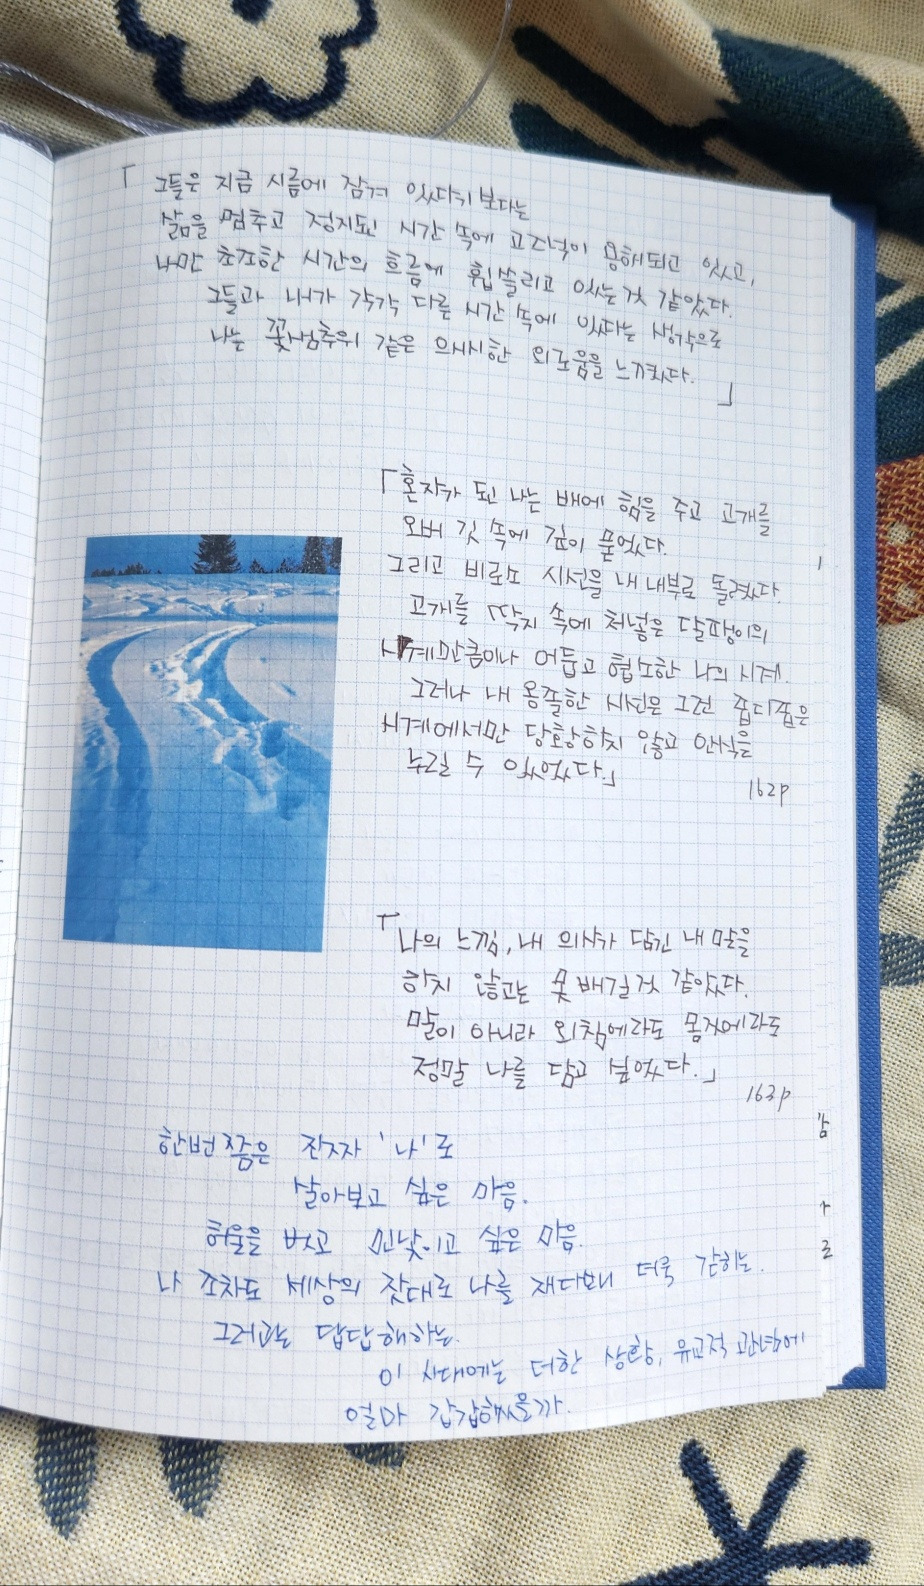 「그들은 지금 시름에 잠겨 있다기 보다는
삶을 멈추고 정지된 시간 속에 고즈넉이 용해되고 있고,
나만 초조한 시간의 흐름에 휩쓸리고 있는 것 같았다.
그들과 내가 각각 다른 시간 속에 있다는 생각으로
나는 꽃샘추위 같은 으시시한 외로움을 느꼈다.」
「혼자가 된 나는 배에 힘을 주고 고개를
오버 깃 속에 깊이 묻었다.
그리고 비로소 시선을 내 내부로 돌렸다.
고개를 딱지 속에 처넣은 달팽이의
시계만큼이나 어둡고 협소한 나의 시계.
그러나 내 옹졸한 시선은 그런 좁디좁은
시계에서만 당황하지 않고 안식을
누릴 수 있었다.」
162p
「나의 느낌, 내 의사가 담긴 내 말을
하지 않고는 못 배길 것 같았다.
말이 아니라 외침에라도 몸짓에라도
정말 나를 담고 싶었다.」
163p
한번쯤은 진짜 '나'로
살아보고 싶은 마음.
허울을 벗고 민낯이고 싶은 마음.
나 조차도 세상의 잣대로 나를 재다보니 더욱 갇히는.
그러곤 답답해하는.
이 시대에는 더한 상황, 유교적 관념에
얼마 갑갑했을까.